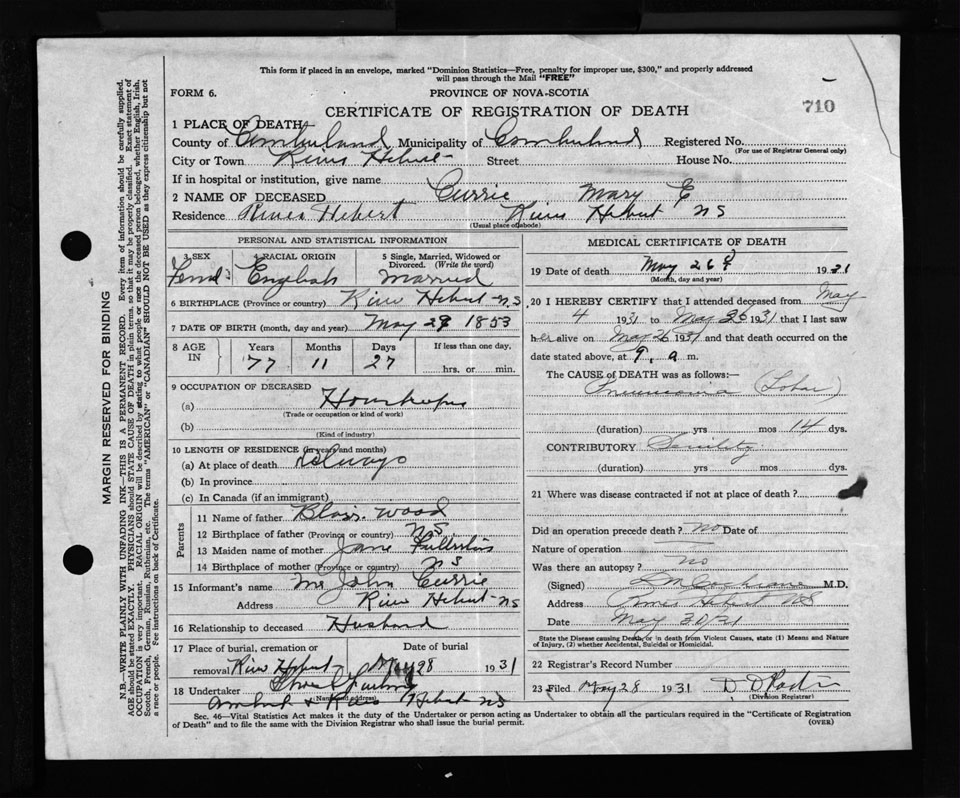 This form if placed in an envelope, marked "Dominion Statistics—Free, penalty for improper use, $300," and properly addressed
will pass through the Mail "FREE"
FORM 6. PROVINCE OF NOVA-SCOTIA 710
CERTIFICATE OF REGISTRATION OF DEATH
1 PLACE OF DEATH
County of Cumberland Municipality of Cumberland Registered No.
(For use of Registrar General only)
City or Town River Hebert Street House No.
If in hospital or institution, give name
2 NAME OF DECEASED Currie Mary E
Residence River Hebert River Hebert NS
(Usual place of abode)
PERSONAL AND STATISTICAL INFORMATION
3 SEX 4 RACIAL ORIGIN 5 Single, Married, Widowed or
Divorced. (Write the word)
English Married
6 BIRTHPLACE (Province or country) River Hebert N.S
7 DATE OF BIRTH (month, day and year) May 29 1853
8 AGE IN Years Months Days If less than one day,
77 11 27 hrs. or min.
9 OCCUPATION OF DECEASED
(a) Housekeeper
(Trade or occupation or kind of work)
(b)
(Kind of industry)
10 LENGTH OF RESIDENCE (in years and months)
(a) At place of death Always
(b) In province
(c) In Canada (if an immigrant)
Parents
11 Name of father Blair Wood
12 Birthplace of father (Province or country) N.S
13 Maiden name of mother Jane
14 Birthplace of mother (Province or country) NS
15 Informant's name Mr John Currie
Address River Hebert NS
16 Relationship to deceased Husband
17 Place of burial, cremation or Date of burial
removal River Hebert May 28 1931
18 Undertaker
(Name and address)
Amherst & River Hebert NS
MEDICAL CERTIFICATE OF DEATH
19 Date of death May 26 1931
(Month, day and year)
20 I HEREBY CERTIFY that I attended deceased from May
4 1931 to May 26 1931 that I last saw
her alive on May 26 1931 and that death occurred on the
date stated above, at 9 a. m.
The CAUSE of DEATH was as follows:—
Pneumonia (Lobar)
(duration) yrs mos 14 dys.
CONTRIBUTORY Senility
(duration) yrs mos dys.
21 Where was disease contracted if not at place of death?
Did an operation precede death? no Date of
Nature of operation
Was there an autopsy? No
(Signed) Cochrane M.D.
Address River Hebert NS
Date May 30/31
State the Disease causing Death, or in death from Violent Causes, state (1) Means and Nature
of Injury, (2) whether Accidental, Suicidal or Homicidal.
22 Registrar's Record Number
23 Filed May 28 1931
(Division Registrar)
Sec. 46—Vital Statistics Act makes it the duty of the Undertaker or person acting as Undertaker to obtain all the particulars required in the "Certificate of Registration
of Death" and to file the same with the Division Registrar who shall issue the burial permit. (OVER)
MARGIN RESERVED FOR BINDING
N.B.—WRITE PLAINLY WITH UNFADING INK—THIS IS A PERMANENT RECORD. Every item of information should be carefully supplied.
AGE should be stated EXACTLY. PHYSICIANS should STATE CAUSE OF DEATH in plain terms, so that it may be properly classified. Exact statement of
OCCUPATION is very important. RACIAL ORIGIN will be described by stating to what people or race the deceased person belonged, whether English, Irish,
Scotch, French, German, Russian, Ruthenian, etc. The terms "AMERICAN" or "CANADIAN" SHOULD NOT BE USED as they express citizenship but not
a race or people. Fee instructions on back of Certificate.